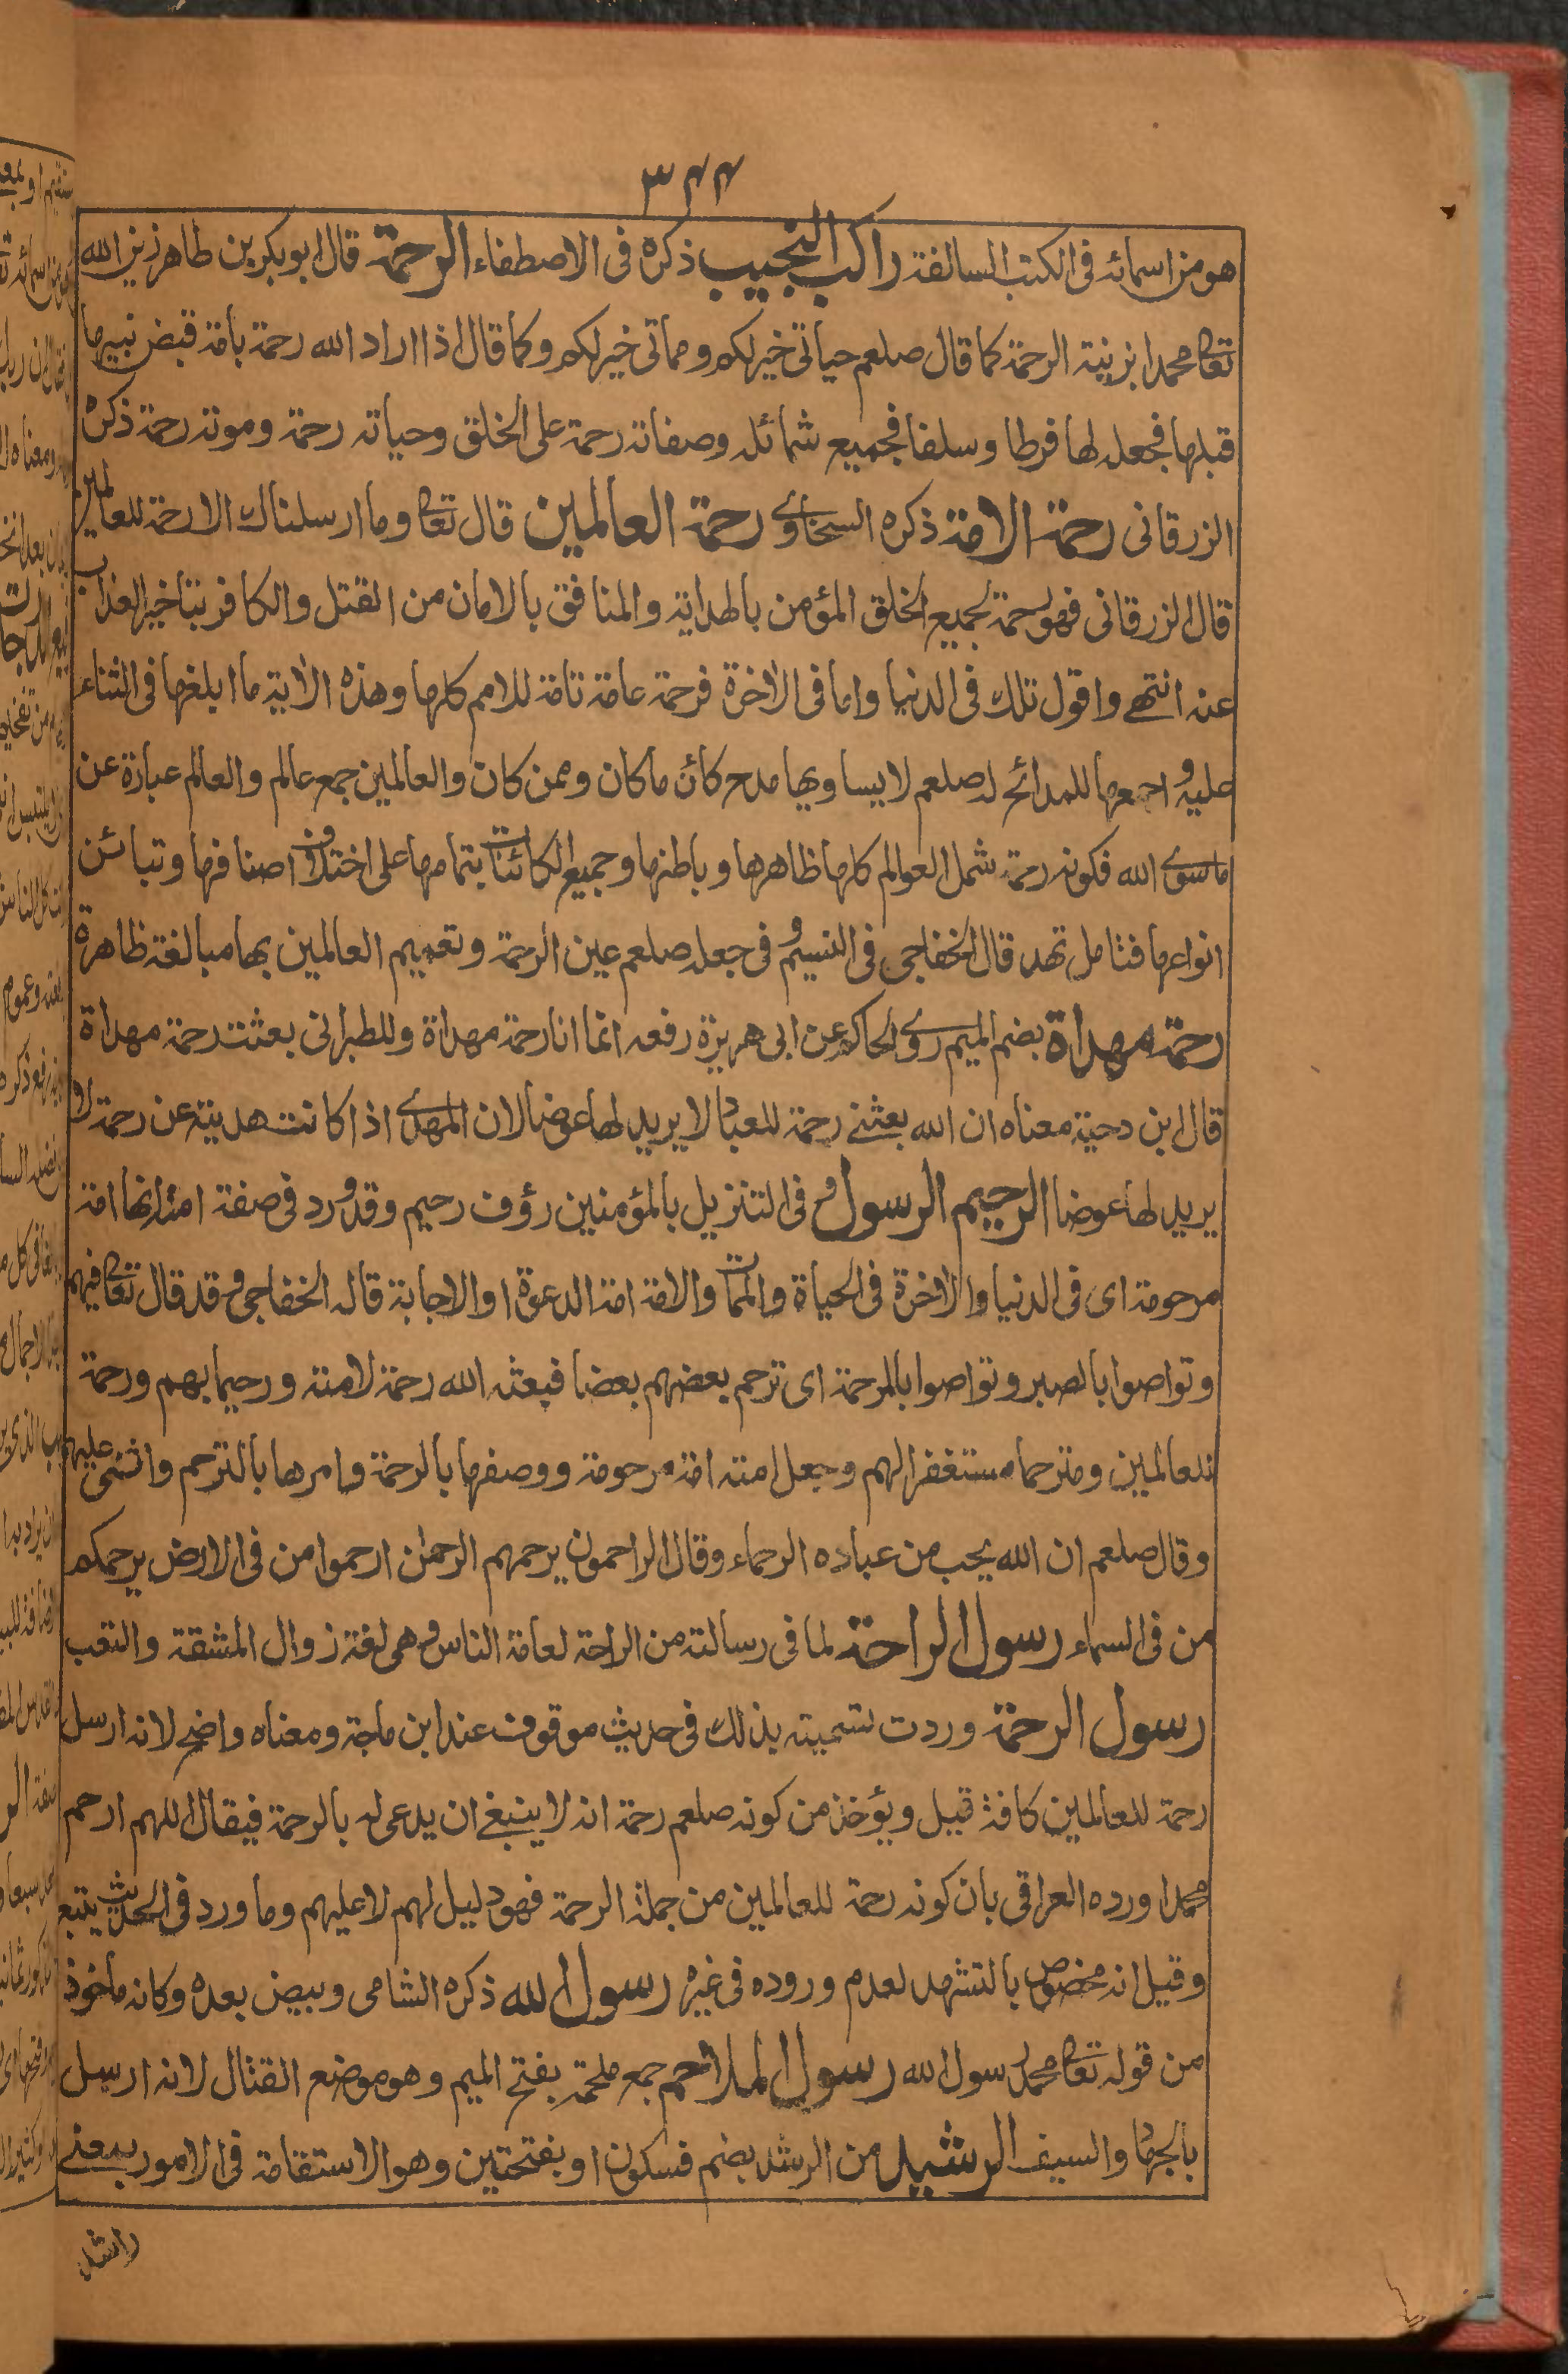 ٣٤٤
هو من اسمائه فى الكتب السالفة راكب النجيب ذكره فى الاصطفاء الرحمة قال ابو بكر بن طاهر زين الله
تعا محمدا بزينة الرحمة كما قال صلعم حياتى خير لكم ومماتى خير لكم وكما قال اذا اراد الله رحمة بأمة قبض نبيها
قبلها فجعله لها فرطا وسلفا فجميع شمائله وصفاته رحمة على الخلق وحياته رحمة وموته رحمة ذكره
الزرقانى رحمة الامة ذكره السخاوى رحمة العالمين قال تعا وما ارسلناك الا رحمة للعالمين
قال الزرقانى فهو رحمة لجميع الخلق المؤمن بالهداية والمنافق بالامان من القتل والكافر بتأخير العذاب
عنه انتهى واقول تلك فى الدنيا واما فى الاخرة فرحمة عامة تامة للامم كلها وهذه الاية ما ابلغها فى الثناء
عليه و اجمعها للمدائح له صلعم لا يساويها مدح كائن ما كان وممن كان والعالمين جمع عالم والعالم عبارة عن
ما سوى الله فكونه رحمة شمل العوالم كلها ظاهرها وباطنها وجميع الكائنات بتمامها على اختلاف اصنافها وتبائن
انواعها فتامل تهد قال الخفاجى فى النسيم و فى جعله صلعم عين الرحمة وتعميم العالمين بها مبالغة ظاهرة
رحمة مهداة بضم الميم روى الحاكم عن ابى هريرة رفعه انما انا رحمة مهداة وللطبرانى بعثت رحمة مهداة
قال ابن دحية معناه ان الله بعثنى رحمة للعباد لا يريد لها عوضا لان المهدى اذا كانت هديته عن رحمة لا
يريد لها عوضا الرحيم الرسول و فى التنزيل بالمؤمنين رؤف رحيم وقد ورد فى صفة امته انها امة
مرحومة اى فى الدنيا والاخرة فى الحياة والممات والامة امة الدعوة او الاجابة قاله الخفاجى و قد قال تعا فيهم
وتواصوا بالصبر وتواصوا بالمرحمة اى ترحم بعضهم بعضا فبعثه الله رحمة لامته ورحيما بهم ورحمة
للعالمين ومترحما مستغفرا لهم وجعل امته امة مرحومة ووصفها بالرحمة وامرها بالترحم واثنى عليهم
وقال صلعم ان الله يحب من عباده الرحماء وقال الراحمون يرحمهم الرحمن ارحموا من فى الارض يرحمكم
من فى السماء رسول الراحة لما فى رسالته من الراحة لعامة الناس و هى لغة زوال المشقة والتعب
رسول الرحمة وردت تسميته بذلك فى حديث موقوف عند ابن ماجة ومعناه واضح لانه ارسل
رحمة للعالمين كافة قيل ويؤخذ من كونه صلعم رحمة انه لا ينبغى ان يدعى له بالرحمة فيقال اللهم ارحم
محمدا ورده العراقى بان كونه رحمة للعالمين من جملة الرحمة فهو دليل لهم لا عليهم وما ورد فى الحديث يتبع
وقيل انه مخصوص بالتشهد لعدم وروده فى غيره رسول الله ذكره الشامى وبيض بعده وكانه مأخوذ
من قوله تعا محمد رسول الله رسول الملاحم جمع ملحمة بفتح الميم وهو موضع القتال لانه ارسل
بالجهاد والسيف الرشيد من الرشد بضم فسكون او بفتحتين وهو الاستقامة فى الامور بمعنى
راشد